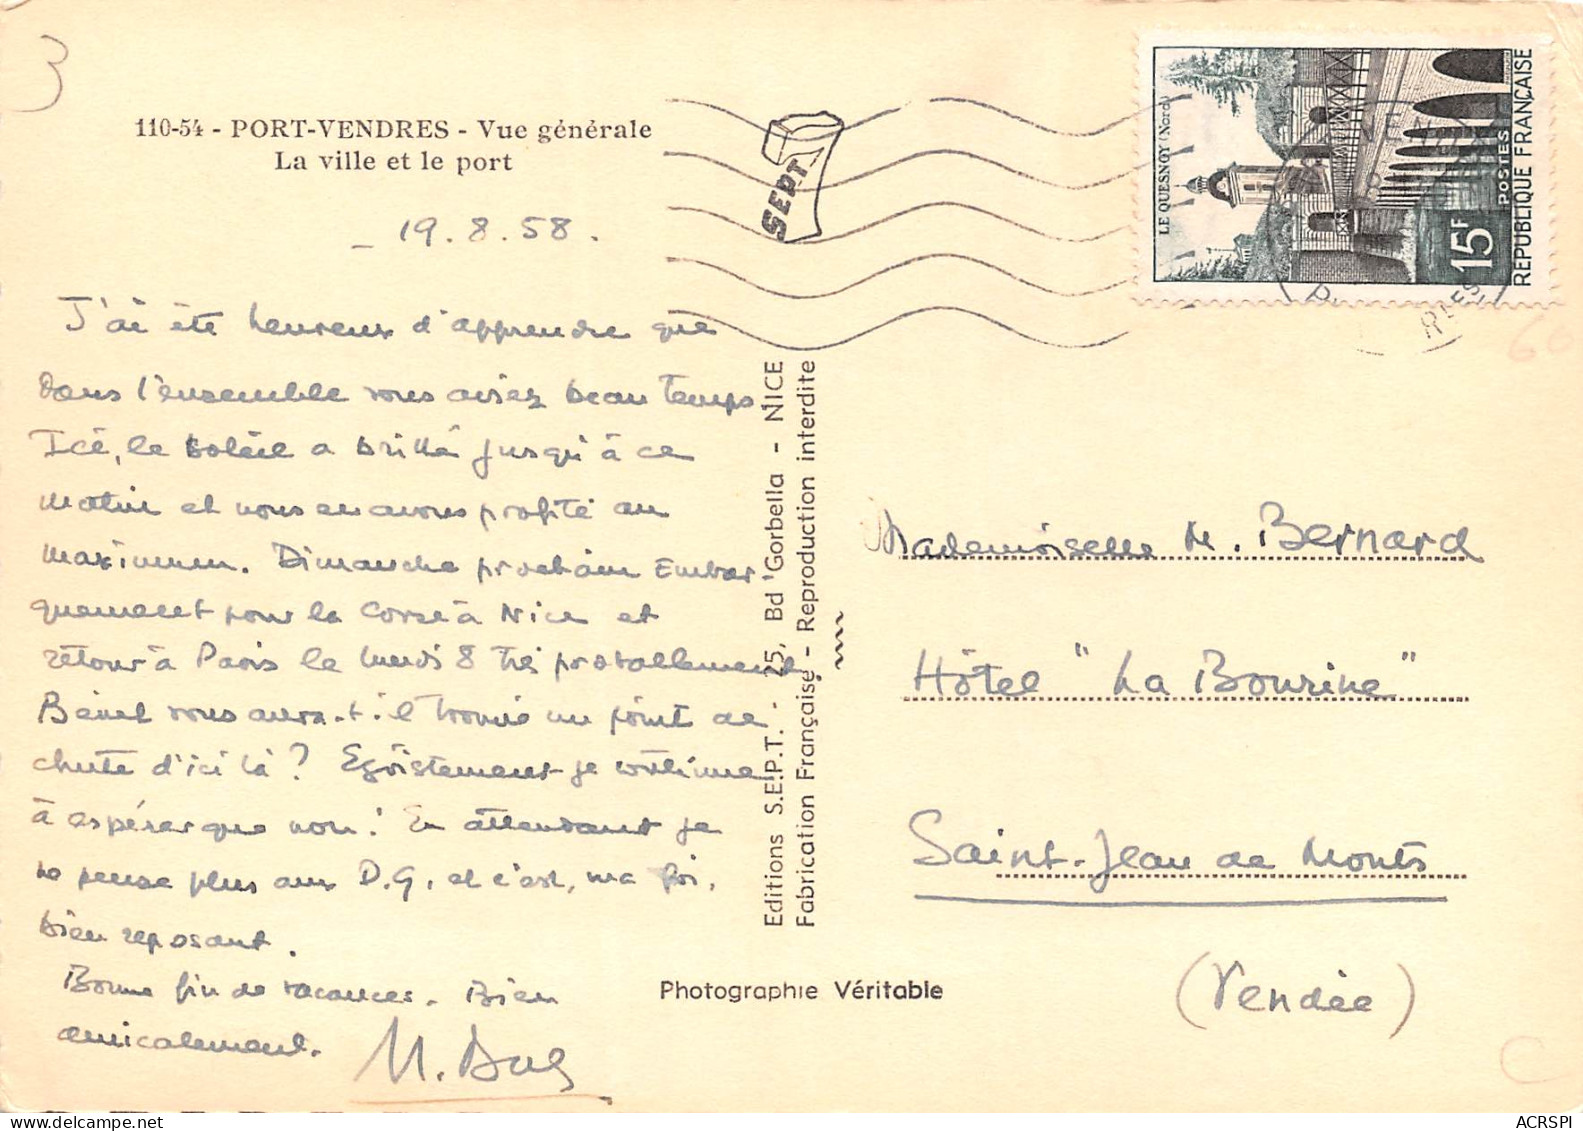 3
110-54 - PORT-VENDRES - Vue générale
La ville et le port
- 19.8.58.
J'ai été heureux d'apprendre que
dans l'ensemble vous aviez beau temps
Ici, le soleil a brillé jusqu'à ce
matin et nous en avons profité au
maximum. Dimanche prochain Embar-
quement pour la Corse à Nice et
retour à Paris le lundi 8 très probablement
vous aura-t-il trouvé un point de
chute d'ici là ? Egoïstement je continue
à espérer que non ! En attendant je
ne pense plus aux D.G. et c'est, ma foi,
bien reposant.
Bonne fin de vacances. Bien
amicalement.
SEPT
LE QUESNOY (Nord)
15F
POSTES
REPUBLIQUE FRANÇAISE
60
Editions S.E.P.T. - 25, Bd Gorbella - NICE
Fabrication Française - Reproduction interdite
Mademoiselle M. Bernard
Hôtel "La Bourine"
Saint-Jean de Monts
(Vendée)
Photographie Véritable
C
ACRSPI